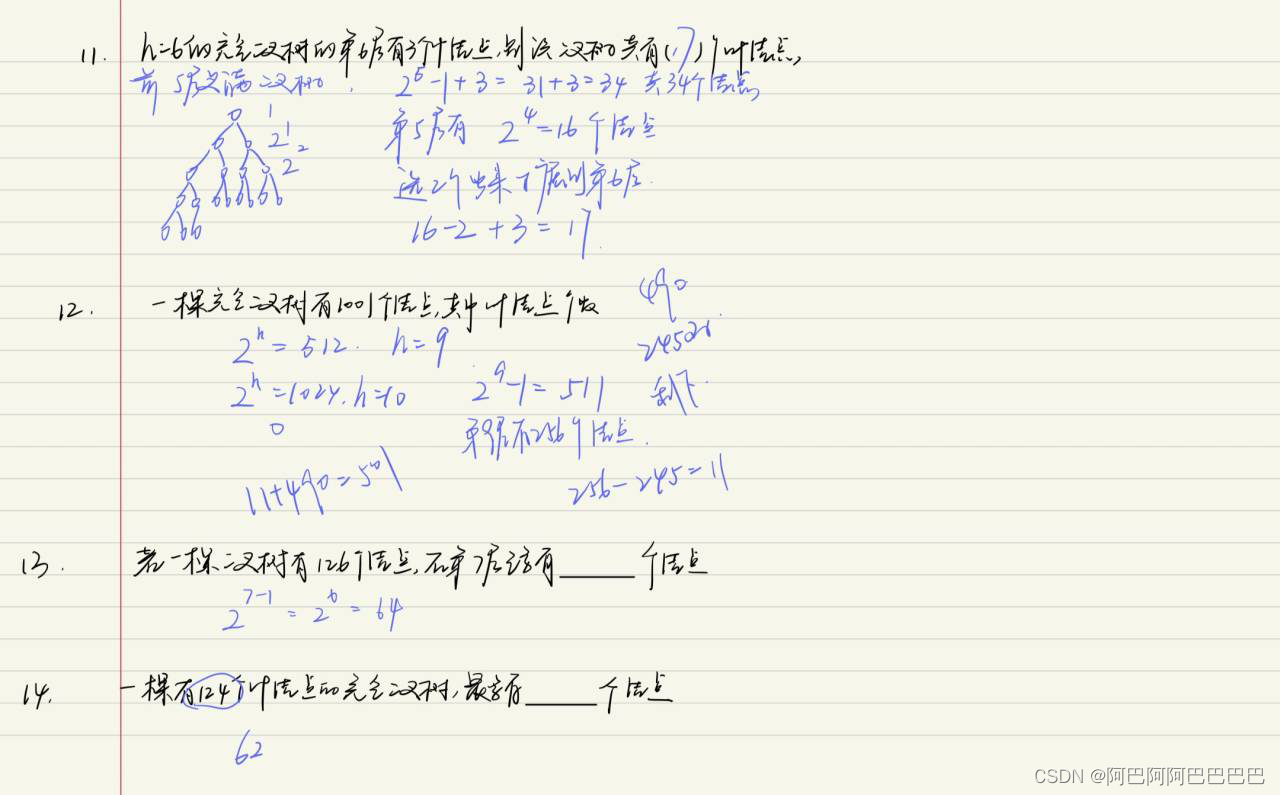 11. h=6的完全二叉树的第6层有3个叶结点,则该二叉树共有(17)个叶结点,
前5层是满二叉树. 2^5-1+3=31+3=34 共34个结点
第5层有 2^4=16个结点
选2个出来下属到第6层.
16-2+3=17
12. 一棵完全二叉树有1001个结点,其中叶结点个数
2^h=512. h=9
2^h=1024. h=10
0
2^9-1=511
第9层有256个结点.
490
245
剩下
256-245=11
11+490=501
13. 若一棵二叉树有126个结点,在第7层至多有______个结点
2^(7-1)=2^6=64
14. 一棵有124个叶结点的完全二叉树,最多有______个结点
62
CSDN @阿巴阿阿巴巴巴巴